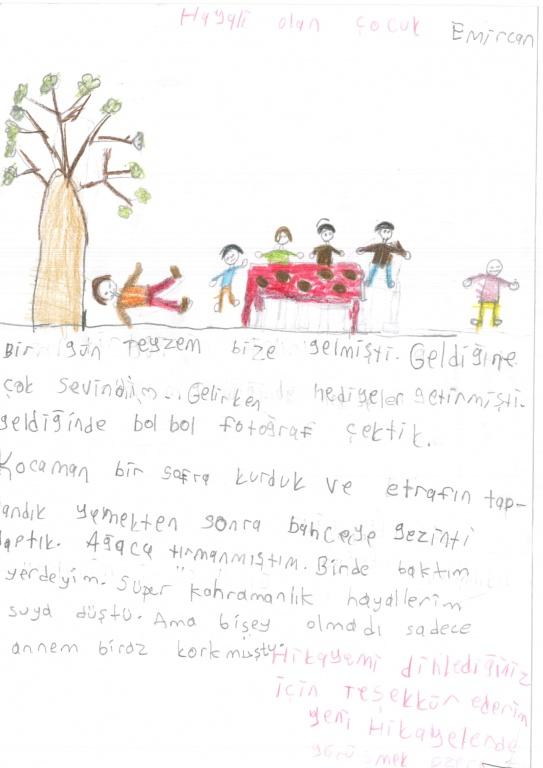 Hayali olan çocuk
Emircan
Bir gün teyzem bize gelmişti. Geldiğine
çok sevindim. Gelirken hediyeler getirmişti.
geldiğinde bol bol fotoğraf çektik.
Kocaman bir sofra kurduk ve etrafın top-
landık yemekten sonra bahçeye gezinti
yaptık. Ağaca tırmanmıştım. Birde baktım
yerdeyim. Süper kahramanlık hayallerim
suya düştü. Ama bişey olmadı sadece
annem biraz korkmuştu.
Hikayemi dinlediğiniz
için Teşekkür ederim
yeni Hikayelerde
görüşmek üzere